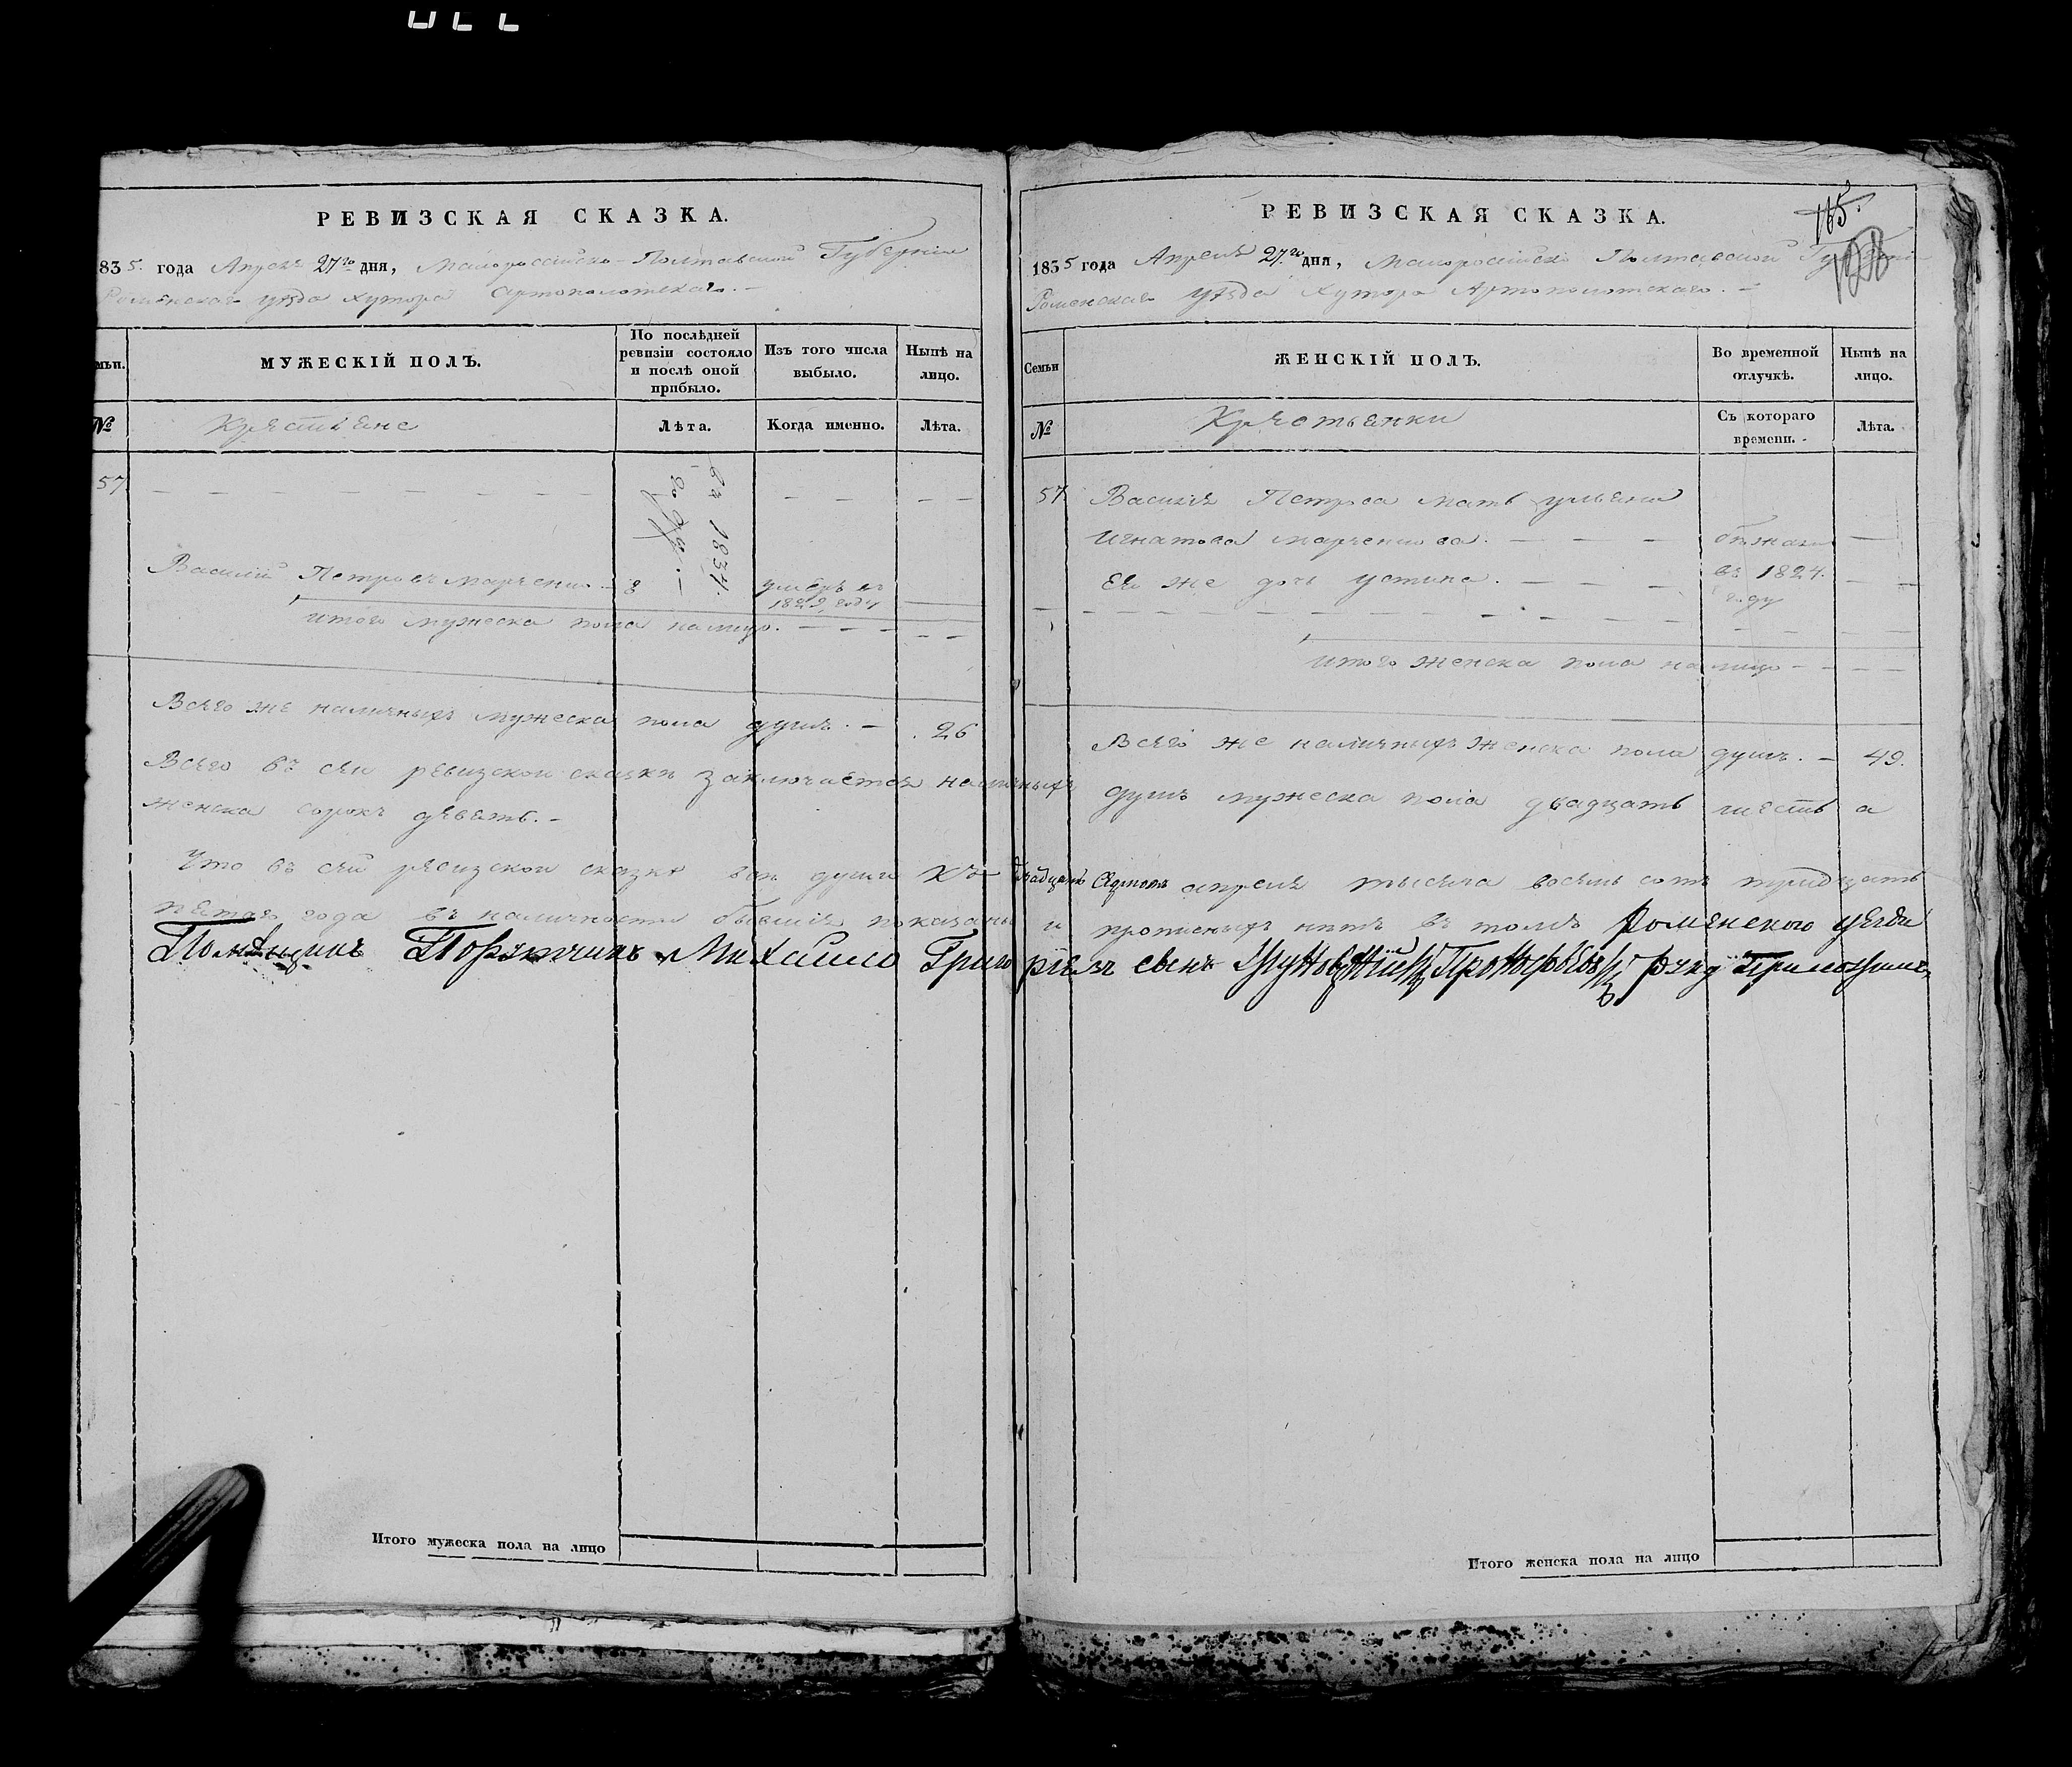 РЕВИЗСКАЯ СКАЗКА.
835. года Апреля 27го дня, Малоросийско-Полтавской Губернии
Роменскаго уѣзда хутора Артополотскаго.-
мьи.
МУЖЕСКІЙ ПОЛЪ.
По послѣдней ревизіи состояло и послѣ оной прибыло.
Изъ того числа выбыло.
Нынѣ на лицо.
№
Крестьяне
Лѣта.
Когда именно.
Лѣта.
57
въ 1834.
году.-
Василий Петровъ Марченко 8 умеръ въ
1829 году
итого мужеска пола налицо.
Всего же наличныхъ мужеска пола душъ.- 26
РЕВИЗСКАЯ СКАЗКА.
165.
1835 года Апреля 27.го дня, Малоросийско Полтавской Губерни
Роменскаго уѣзда Хутора Артополотскаго.-
Семьи
ЖЕНСКІЙ ПОЛЪ.
Во временной отлучкѣ.
Нынѣ на лицо.
№
Крестьянки
Съ котораго времени.
Лѣта.
57. Василія Петрова мать ульяна
Игнатова марченкова. бѣжали
Ея же дочь устина. въ 1824.
году
итого женска пола налицо
Всего же наличныхъ женска пола душъ.- 49.
Всего въ сей ревизской сказки заключается наличныхъ душъ мужеска пола двадцать шесть а
женска сорокъ девять.-
Что въ сей ревизской сказке всѣ души къ двадцать седмого апреля тысяча восемь сотъ тридцать
пятого года въ наличности бывшіе показаны и прописныхъ нѣтъ въ томъ Роменского уезда
Помѣщикъ Порутчикъ Михайло Григориевъ сынъ руку приложилъ
Итого мужеска пола на лицо
Итого женска пола на лицо